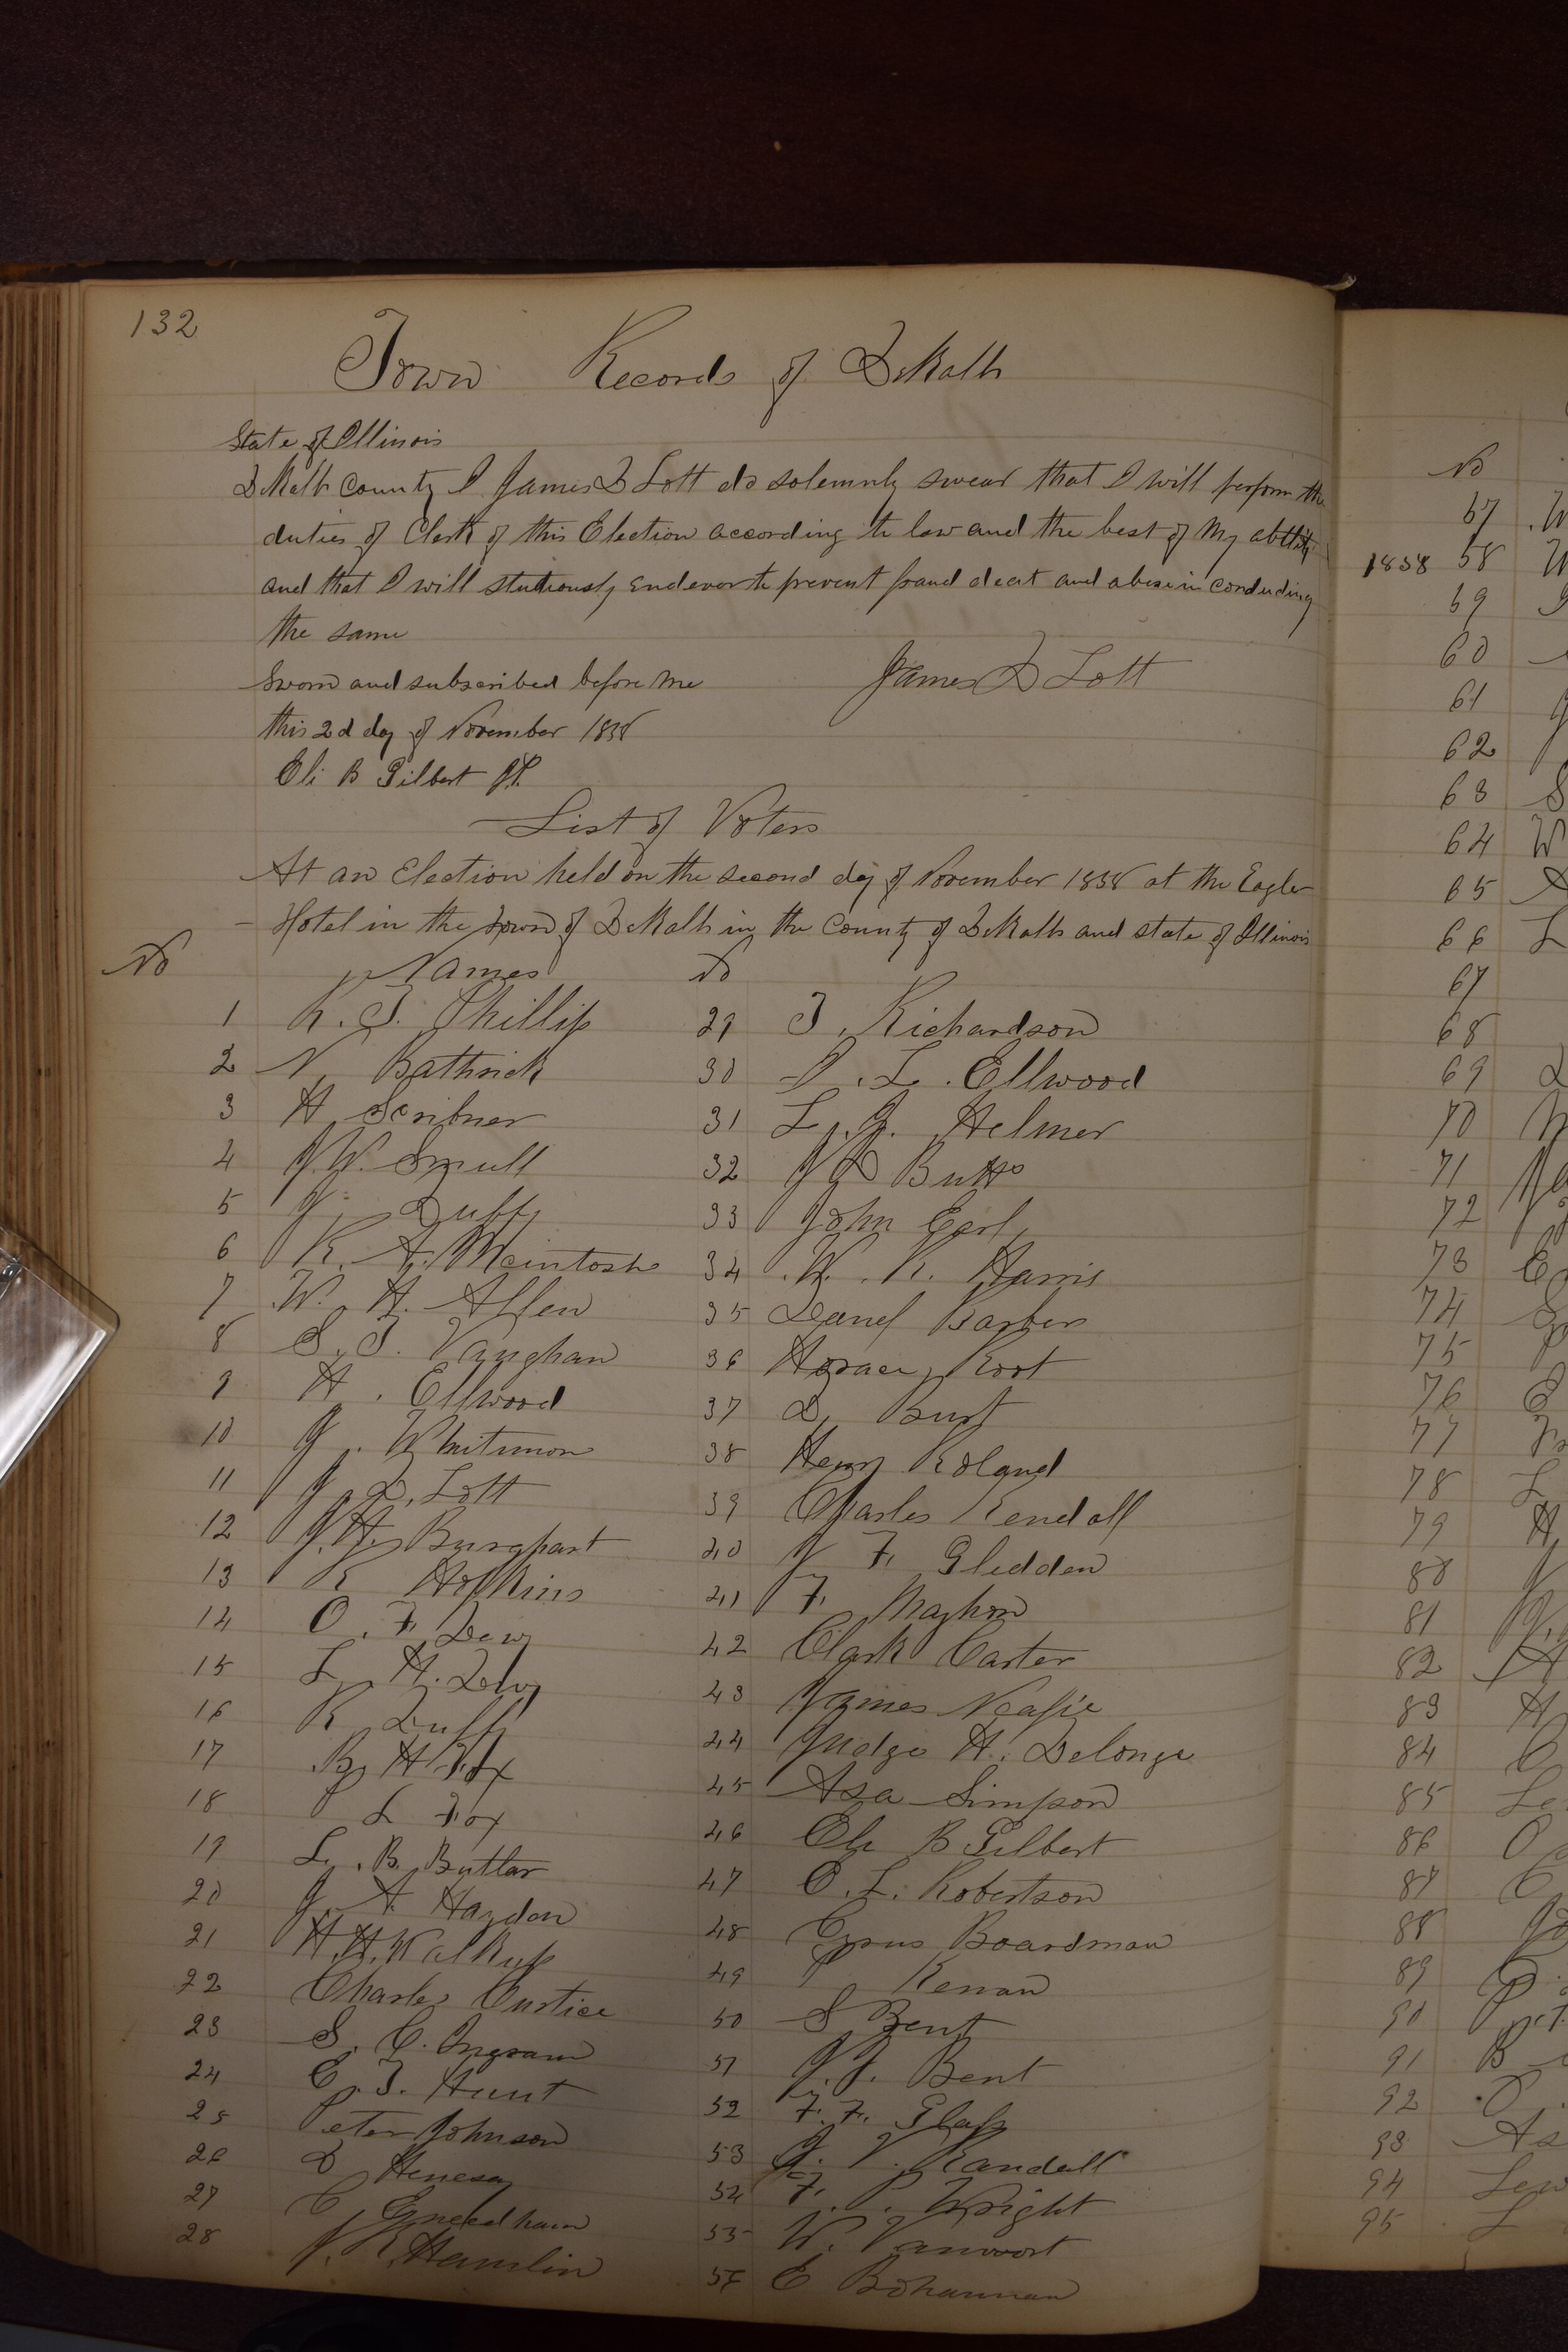 132
Town Records of DeKalb
State of Illinois
DeKalb County I James D Lott do solemnly swear that I will perform the
duties of Clerk of this Election according to law and the best of my ability
and that I will stutiously endevor to prevent fraud deceit and abuse in conducting
the same
Sworn and subscribed before me James D Lott
this 2d day of November 1858
Eli B Gilbert J.P.
List of Voters
At an Election held on the second day of November 1858 at the Eagle
Hotel in the Town of DeKalb in the County of DeKalb and state of Illinois
No Names No
1 R. T. Phillip 29 T. Richardson
2 N. Bathrick 30 I. L. Ellwood
3 H Scribner 31 L. J. Helmer
4 J. W. Smull 32 J D Butts
5 J. Duffy 33 John Earl
6 R. A. McIntosh 34 W. R. Harris
7 W. H. Allen 35 Daniel Barber
8 S. T. Vaughan 36 Horace Root
9 H. Ellwood 37 D. Burt
10 J. Whitmon 38 Henry Roland
11 J. D. Lott 39 Charles Kendall
12 J. H. Burghart 40 J F. Glidden
13 R Hopkins 41 F.
14 O. F. Dewy 42 Clark Carter
15 L. H. Dewy 43 James Neafie
16 R Duffy 44 Judge H. Delonge
17 B. H. Fox 45 Asa Simpson
18 L Fox 46 Eli B Gilbert
19 L. B. Buttler 47 O. L. Robertson
20 J. A Haydon 48 Cyrus Boardman
21 H. H. Walkup 49 P Kenan
22 Charles Custice 50 S Bent
23 S. C. Ingram 51 J. J. Bent
24 E. T. Hunt 52 F. F. Glass
25 Peter Johnson 53 J. V. Randall
26 D Henesy 54 F. P. Wright
27 C. 55 W. Vanwort
28 J. R. Hamlin 57 E Bohannan
No
57 W
1858 58 W
59
60
61
62
63 S
64 W
65
66 L
67
68
69
70
71
72
73
74
75
76
77
78
79
80
81
82
83
84
85
86
87
88
89
90
91
92
93 As
94 Lew
95 L